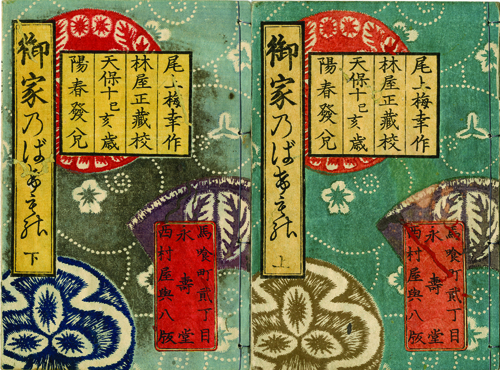 尾上梅幸作
林屋正藏校
天保十己亥歳
陽春發兌
馬喰町貳丁目
永壽堂
西村屋與八版
御家乃ばけもの 上
尾上梅幸作
林屋正藏校
天保十己亥歳
陽春發兌
馬喰町貳丁目
永壽堂
西村屋與八版
御家乃ばけもの 下